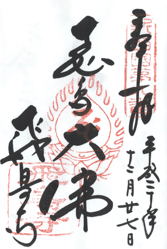 奉拝
平成二十年
十二月廿七日
飛鳥大佛
飛鳥寺